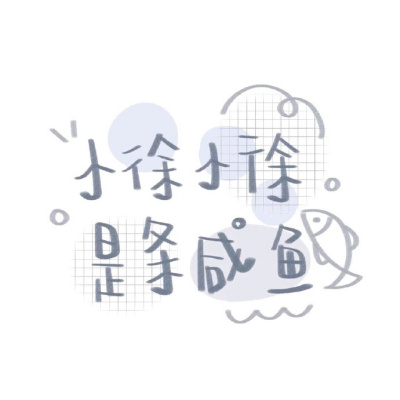 小徐小徐
是条咸鱼